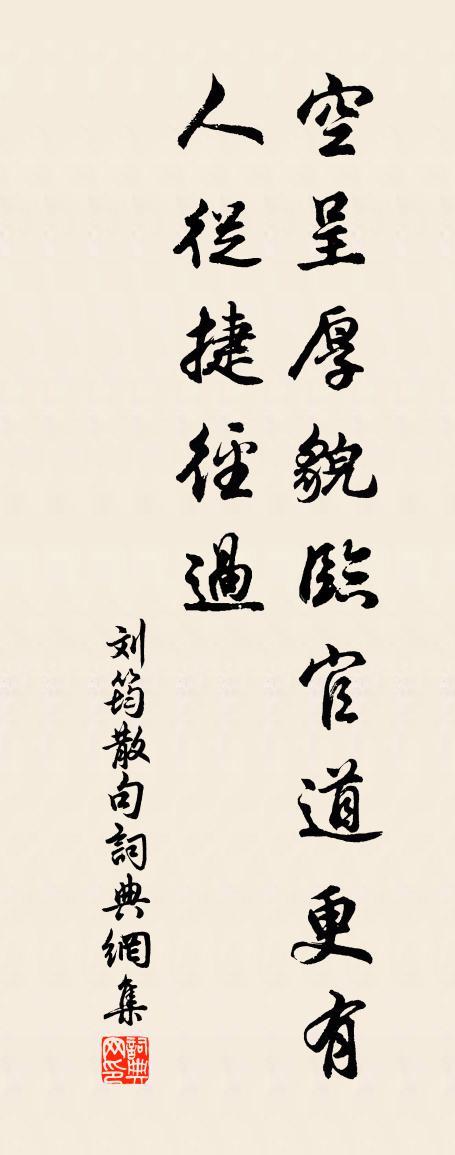 空呈厚貌臨官道更有
人從捷徑過
刘筠散句詞典網集
詞典网印